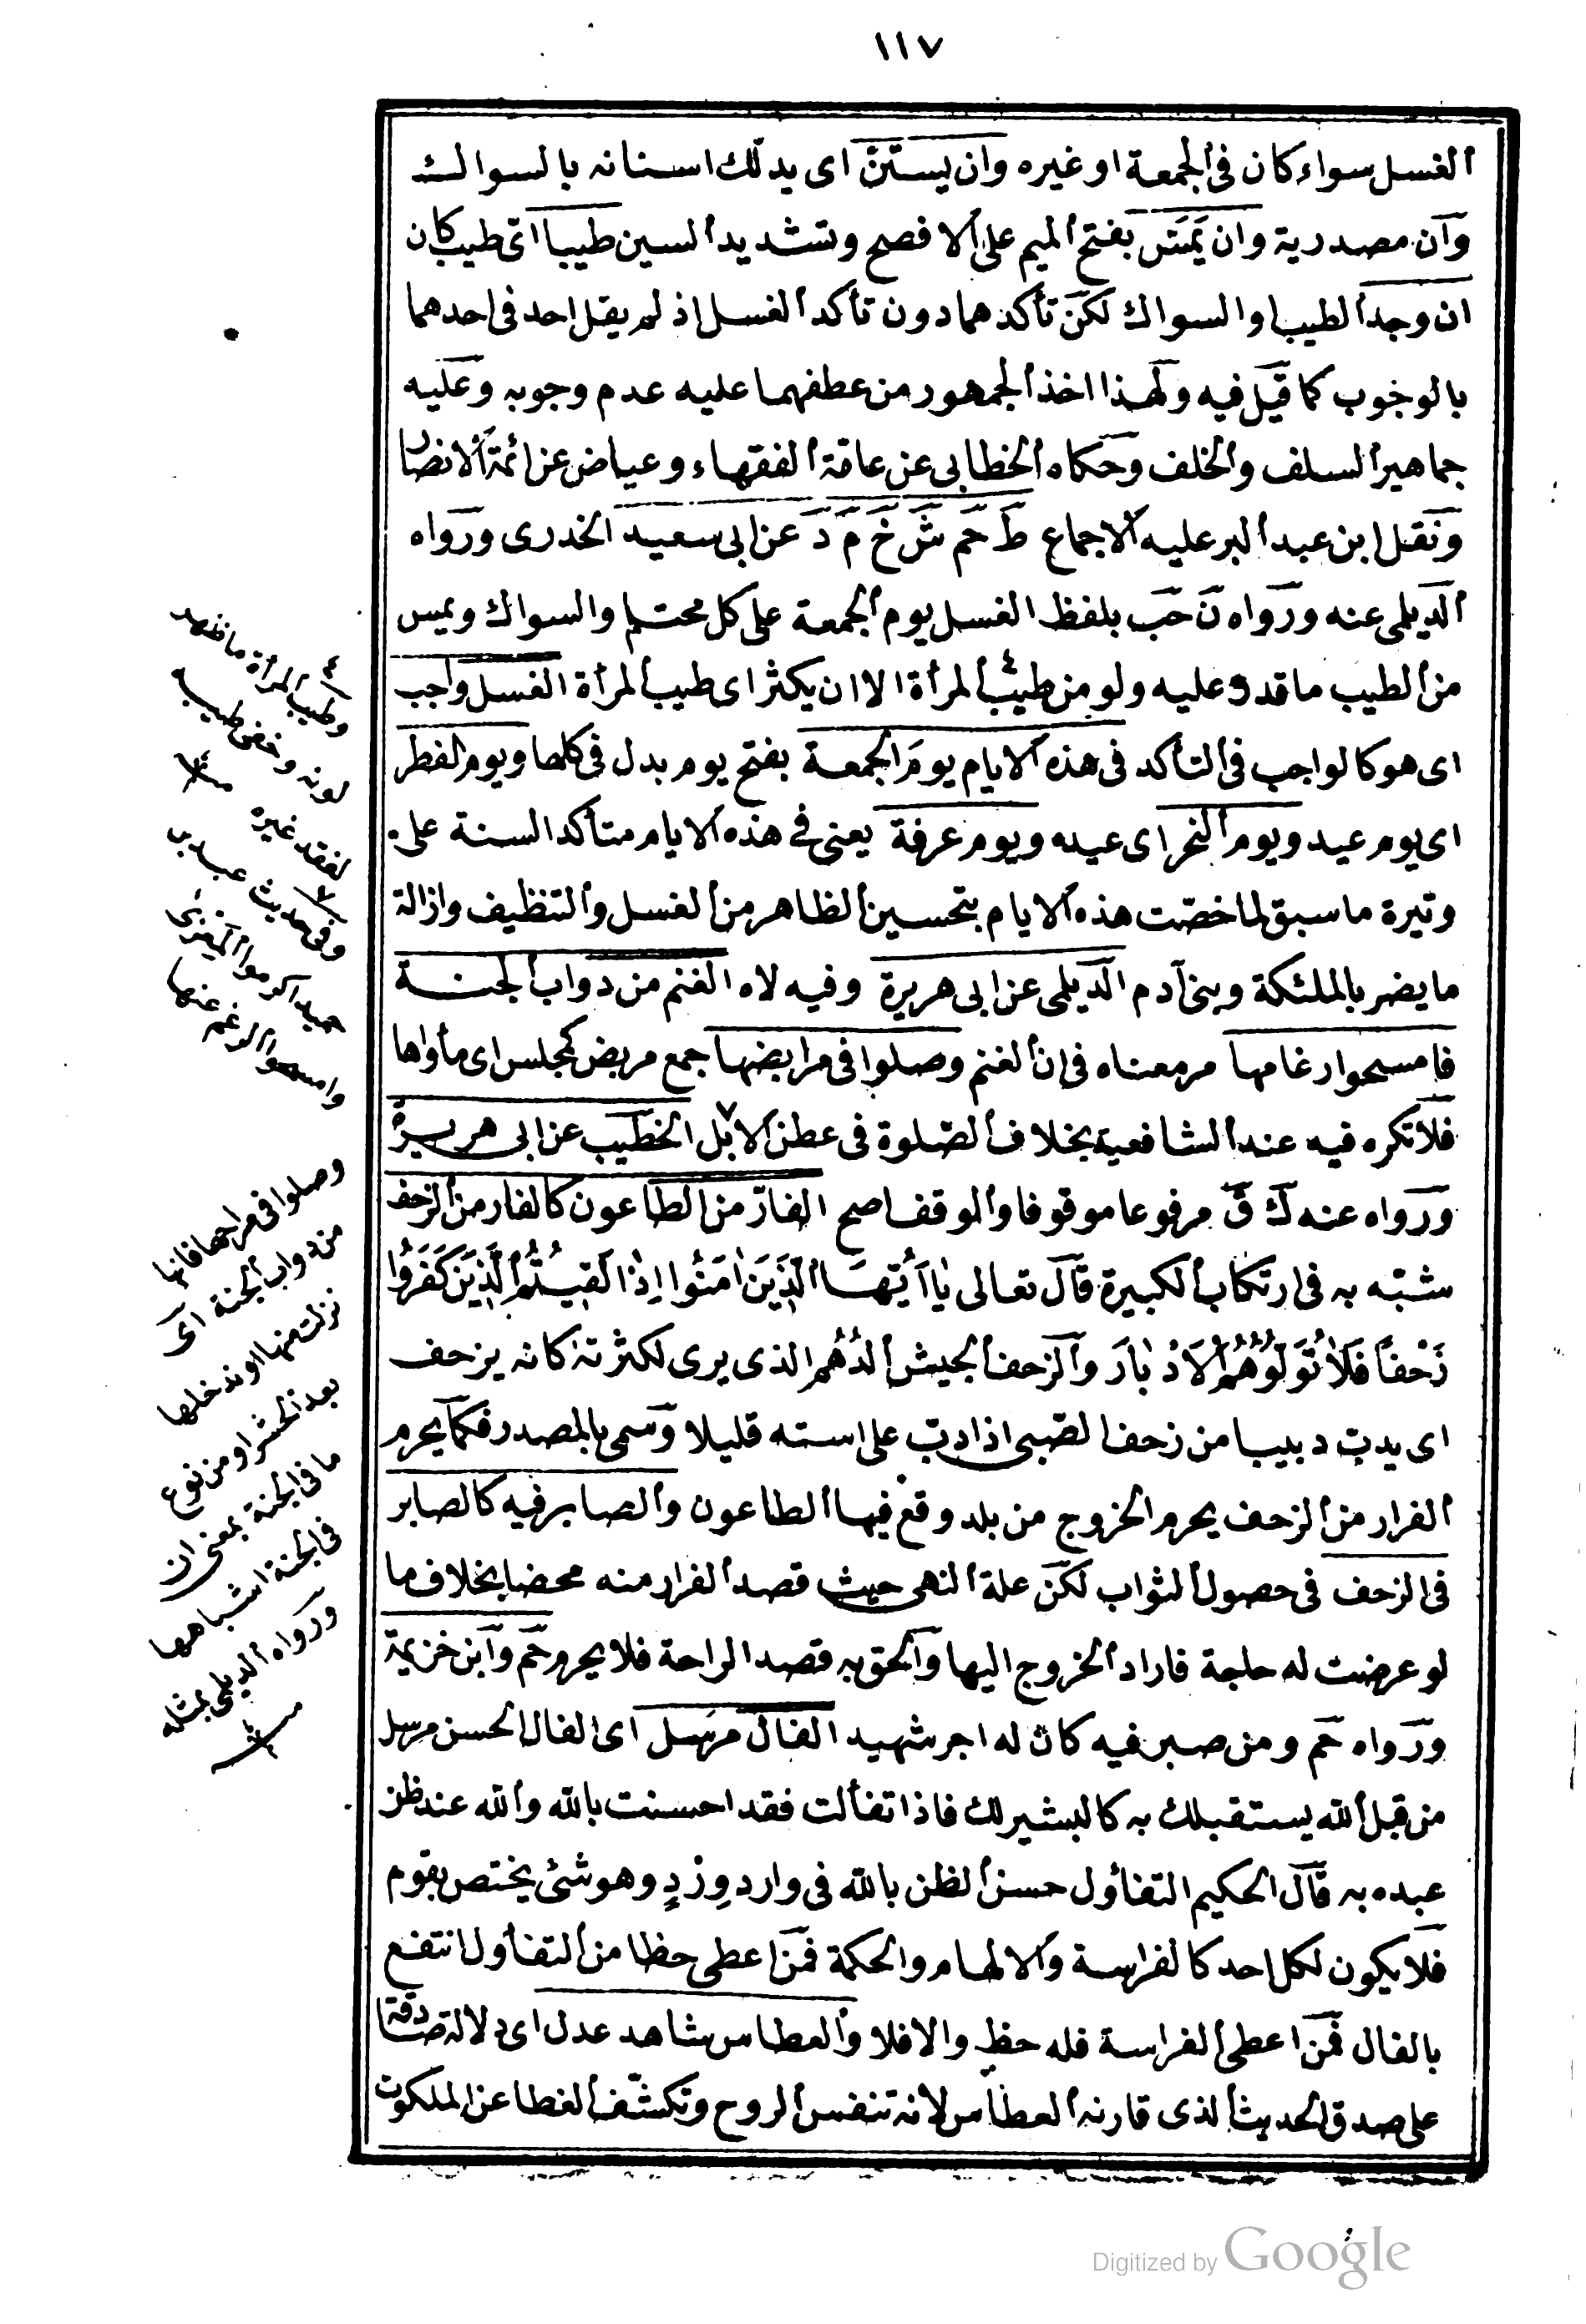 ١١٧
الغسل سواء كان في الجمعة او غيره وان يستنّ اى يدلّك اسنانه بالسواك
وان مصدرية وان يَمَسّ بفتح الميم على الافصح وتشديد السين طيبا اىّ طيب كان
ان وجد الطيب والسواك لكن تأكدهما دون تأكد الغسل اذ لم يقل احد فى احدهما
بالوجوب كما قيل فيه ولهذا اخذ الجمهور من عطفهما عليه عدم وجوبه وعليه
جماهير السلف والخلف وحكاه الخطابى عن عامّة الفقهاء وعياض عن ائمة الانصار
ونقل ابن عبد البر عليه الاجماع ط حم ش خ م د عن ابى سعيد الخدرى ورواه
الديلمى عنه ورواه ن حب بلفظ الغسل يوم الجمعة على كل محتلم والسواك ويمس
من الطيب ما قدر عليه ولو من طيب المرأة الا ان يكثر اى طيب المرأة الغسل واجب
اى هو كالواجب فى التأكد فى هذه الايام يومَ الجمعة بفتح يوم بدل فى كلها ويوم الفطر
اى يوم عيد ويوم النحر اى عيده ويوم عرفة يعنى فى هذه الايام متأكد السنة على
وتيرة ما سبق لما خصّت هذه الايام بتحسين الظاهر من الغسل والتنظيف وازالة
ما يضر بالملئكة وبنى آدم الديلمى عن ابى هريرة وفيه لاه الغنم من دواب الجنة
فامسحوا رغامها مر معناه فى ان الغنم وصلوا فى مرابضها جمع مربض كمجلس اى مأواها
فلا تكره فيه عند الشافعية بخلاف الصّلوة فى عطن الابل الخطيب عن ابى هريرة
ورواه عنه ك ق مرفوعا موقوفا والموقف اصح الفارّ من الطاعون كالفار من الزحف
شبّه به فى ارتكاب الكبيرة قال تعالى يٰا اَيُّهَا الَّذِينَ اٰمَنُوا اِذٰا لَقِيتُمُ الَّذِينَ كَفَرُوا
زَحْفاً فَلاٰ تُوَلُّوهُمُ الْاَدْبٰارَ والزحف الجيش الدُهُم الذى يرى لكثرته كانه يزحف
اى يدبّ دبيبا من زحف الصّبى اذا دبّ على استه قليلا وسمى بالمصدر فكما يحرم
الفرار من الزحف يحرم الخروج من بلد وقع فيها الطاعون والصابر فيه كالصابر
فى الزحف فى حصول الثواب لكن علة النهى حيث قصد الفرار منه محضا بخلاف ما
لو عرضت له حاجة فاراد الخروج اليها والحق به قصد الراحة فلا يحرم حم وابن خزيمة
ورواه حم ومن صبر فيه كان له اجر شهيد الفال مرسَل اى الفال الحسن مرسل
من قبل الله يستقبلك به كالبشير لك فاذا تفألت فقد احسنت بالله والله عند ظن
عبده به قال الحكيم التفأول حسن الظن بالله فى وارد وِرْدٍ وهو شئ يختص بقوم
فلا يكون لكل احد كالفراسة والالهام والحكمة فمن اعطى حظا من التفأول انتفع
بالفال فمن اعطى الفراسة فله حظ والا فلا والعطاس شاهد عدل اى دلالة صادقة
على صدق الحديث الذى قارنه العطاس لانه تنفس الروح وتكشّف الغطا عن الملكوت
٤
وطيب المرأة ما ظهر
لونه وخفى طيب
لفقد غيره
وفى حديث
اكرموا المعزى
وامسحوا الرغم عنها
وصلوا فى مراحها فانها
من دواب الجنة اى
نزلت منها او تدخلها
بعد الحشر او من نوع
ما فى الجنة بمعنى ان
فى الجنة اشباهها
ورواه الديلمى بمثله
Digitized by Google